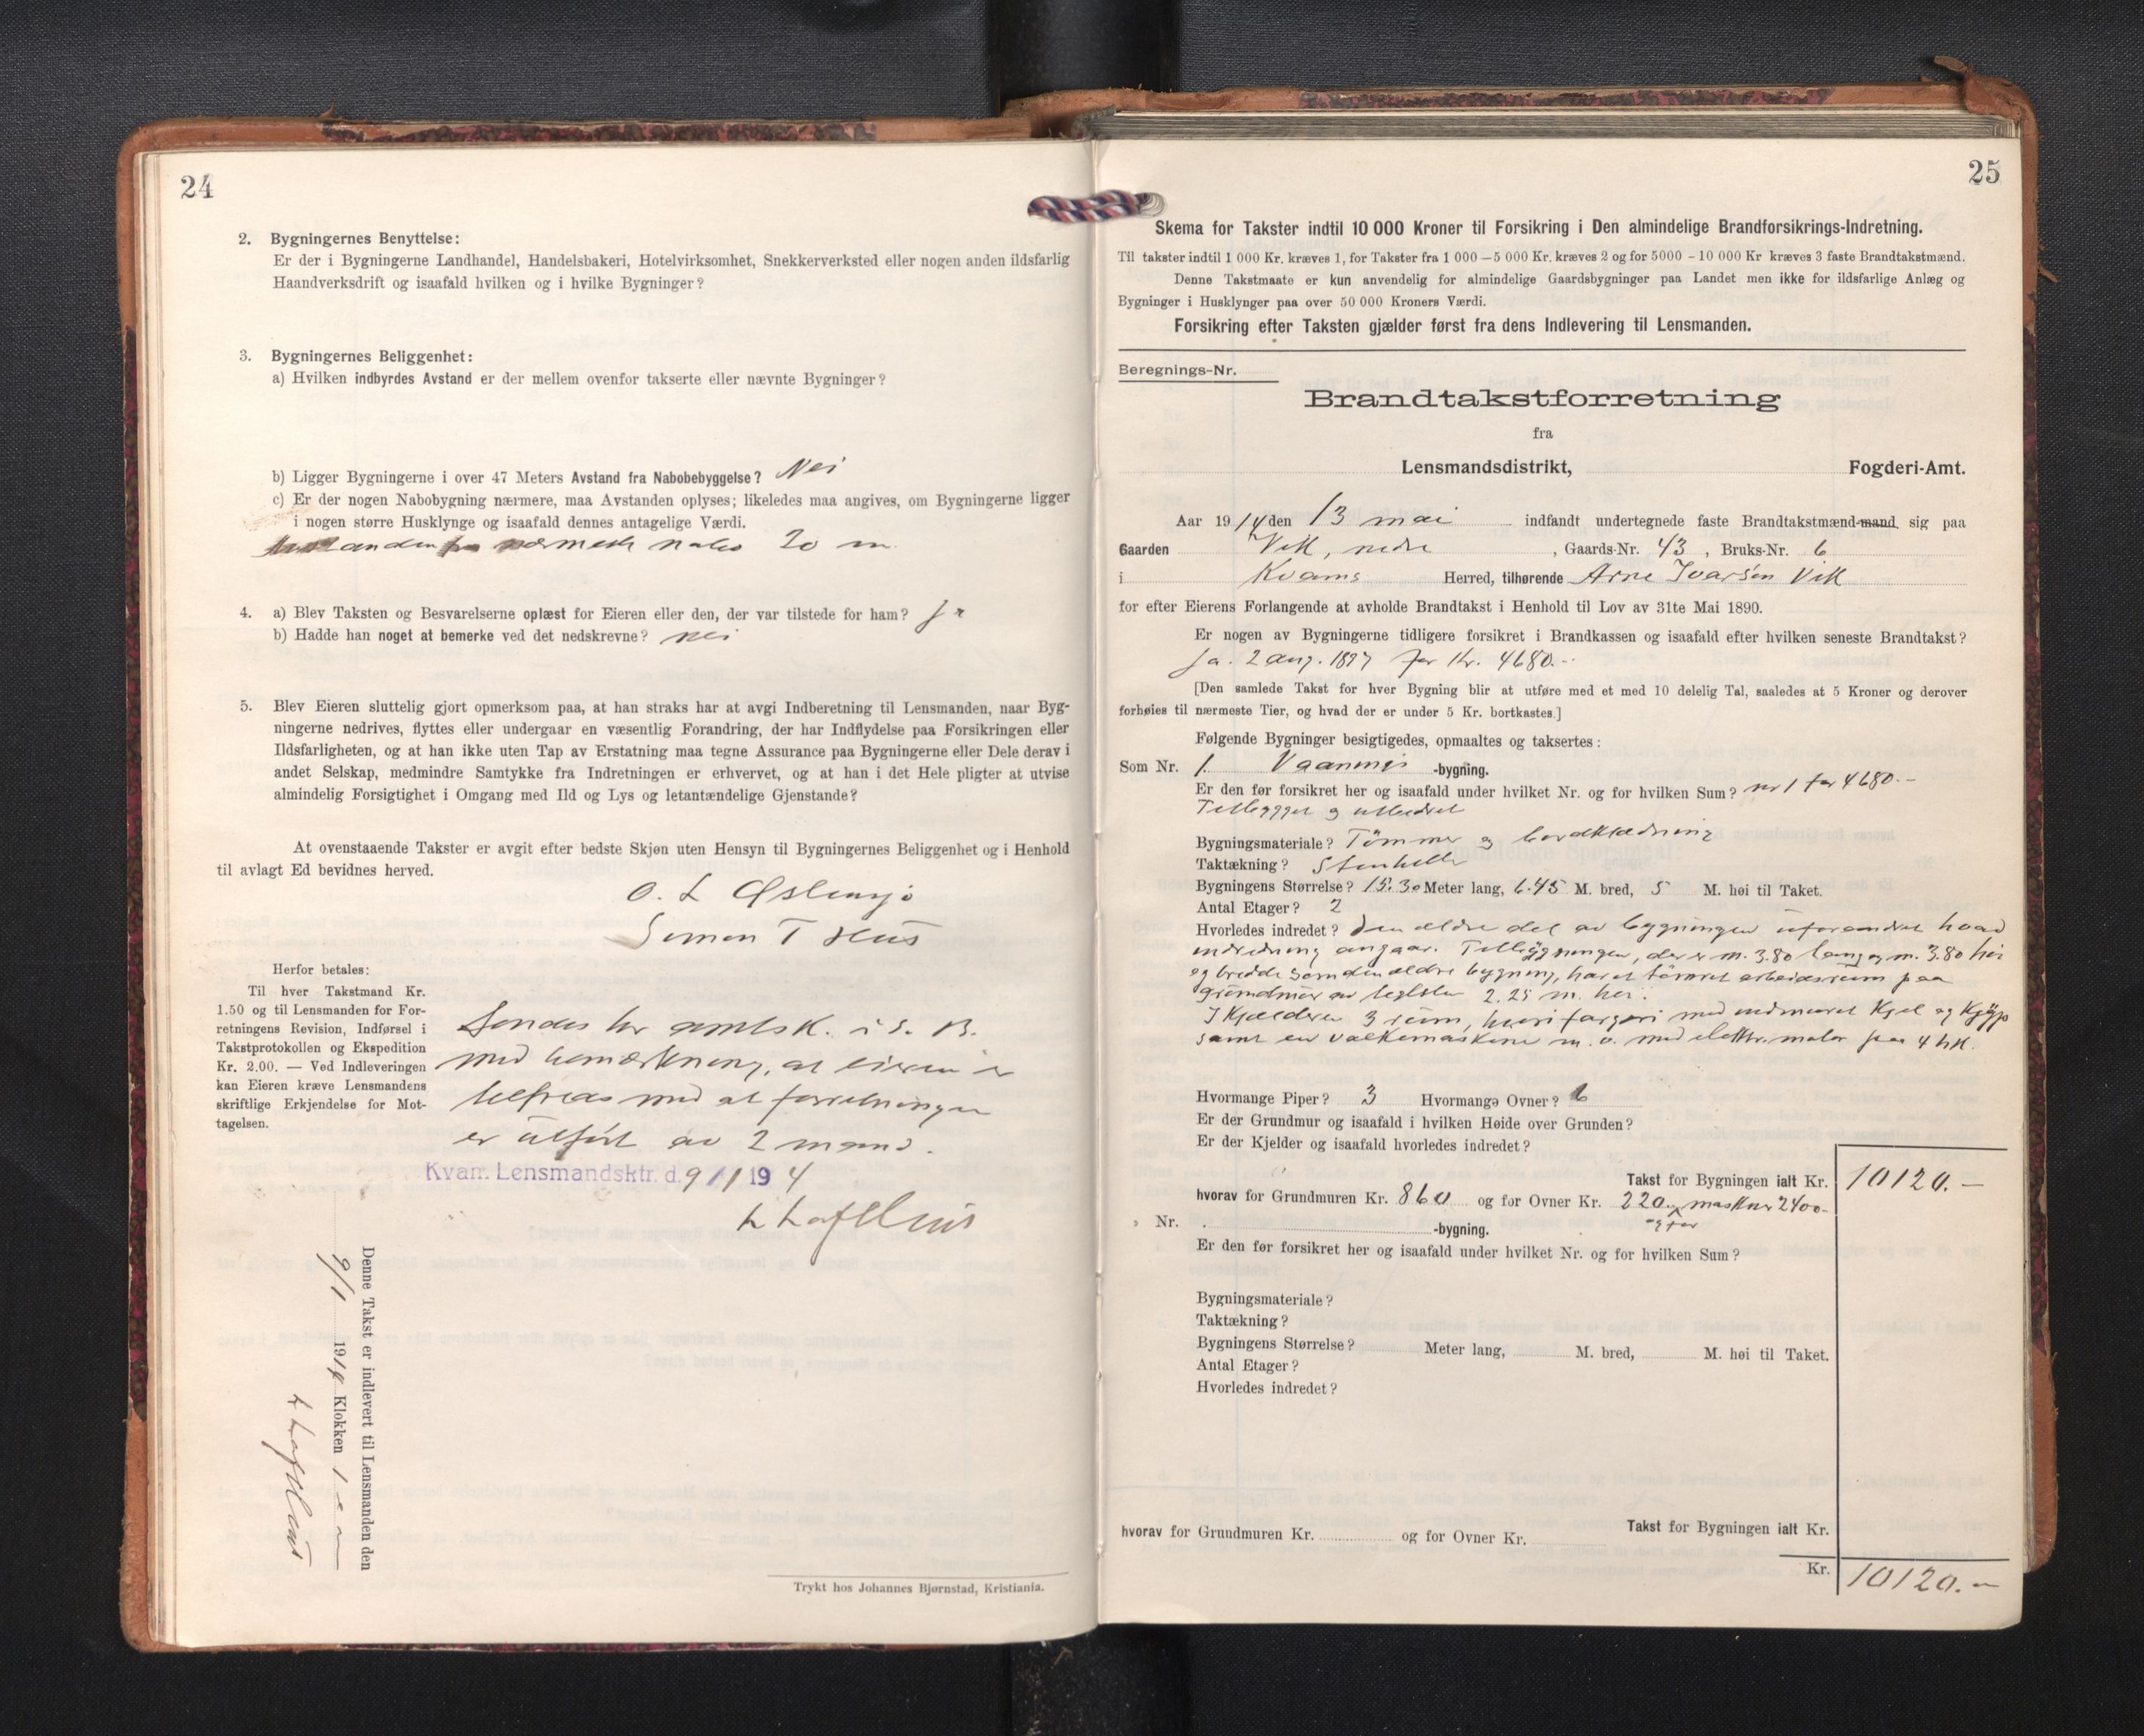 24
2. Bygningernes Benyttelse:
Er der i Bygningerne Landhandel, Handelsbakeri, Hotelvirksomhet, Snekkerverksted eller nogen anden ildsfarlig
Haandverksdrift og isaafald hvilken og i hvilke Bygninger?
3. Bygningernes Beliggenhet:
a) Hvilken indbyrdes Avstand er der mellem ovenfor takserte eller nævnte Bygninger?
b) Ligger Bygningerne i over 47 Meters Avstand fra Nabobebyggelse? Nei
c) Er der nogen Nabobygning nærmere, maa Avstanden oplyses; likeledes maa angives, om Bygningerne ligger
i nogen større Husklynge og isaafald dennes antagelige Værdi.
nærmeste nabo 20 m
4. a) Blev Taksten og Besvarelserne oplæst for Eieren eller den, der var tilstede for ham? Ja
b) Hadde han noget at bemerke ved det nedskrevne? nei
5. Blev Eieren sluttelig gjort opmerksom paa, at han straks har at avgi Indberetning til Lensmanden, naar Byg-
ningerne nedrives, flyttes eller undergaar en væsentlig Forandring, der har Indflydelse paa Forsikringen eller
Ildsfarligheten, og at han ikke uten Tap av Erstatning maa tegne Assurance paa Bygningerne eller Dele derav i
andet Selskap, medmindre Samtykke fra Indretningen er erhvervet, og at han i det Hele pligter at utvise
almindelig Forsigtighet i Omgang med Ild og Lys og letantændelige Gjenstande?
At ovenstaaende Takster er avgit efter bedste Skjøn uten Hensyn til Bygningernes Beliggenhet og i Henhold
til avlagt Ed bevidnes herved.
O. L
Simon T Hus
Herfor betales:
Til hver Takstmand Kr.
1.50 og til Lensmanden for For-
retningens Revision, Indførsel i
Takstprotokollen og Ekspedition
Kr. 2.00. — Ved Indleveringen
kan Eieren kræve Lensmandens
skriftlige Erkjendelse for Mot-
tagelsen.
Sendes hr amtsk. i S. B.
med bemerkning, at eieren er
tilfreds med at forretningen
er utført av 2 mænd.
Kvam Lensmandsktr. d. 9/1 19 4
Denne Takst er indlevert til Lensmanden den
9/1 1914 Klokken 1
Trykt hos Johannes Bjørnstad, Kristiania.
25
Skema for Takster indtil 10 000 Kroner til Forsikring i Den almindelige Brandforsikrings-Indretning.
Til takster indtil 1 000 Kr. kræves 1, for Takster fra 1 000—5 000 Kr. kræves 2 og for 5000 - 10 000 Kr kræves 3 faste Brandtakstmænd.
Denne Takstmaate er kun anvendelig for almindelige Gaardsbygninger paa Landet men ikke for ildsfarlige Anlæg og
Bygninger i Husklynger paa over 50 000 Kroners Værdi.
Forsikring efter Taksten gjælder først fra dens Indlevering til Lensmanden.
Beregnings-Nr.
Brandtakstforretning
fra
Lensmandsdistrikt, Fogderi-Amt.
Aar 1914 den 13 mai indfandt undertegnede faste Brandtakstmænd-mand sig paa
Gaarden Vik, nedre, Gaards-Nr. 43, Bruks-Nr. 6
i Kvams Herred, tilhørende Arne Ivarsøn Vik
for efter Eierens Forlangende at avholde Brandtakst i Henhold til Lov av 31te Mai 1890.
Er nogen av Bygningerne tidligere forsikret i Brandkassen og isaafald efter hvilken seneste Brandtakst?
Ja. 2 aug. 1897 for Kr. 4680.-
[Den samlede Takst for hver Bygning blir at utføre med et med 10 delelig Tal, saaledes at 5 Kroner og derover
forhøies til nærmeste Tier, og hvad der er under 5 Kr. bortkastes.]
Følgende Bygninger besigtigedes, opmaaltes og taksertes:
Som Nr. 1. Vaanings -bygning.
Er den før forsikret her og isaafald under hvilket Nr. og for hvilken Sum? nr 1 for 4680.-
Tilbygget og utbedret
Bygningsmateriale? Tömmer og bordklædning
Taktækning? Stenheller
Bygningens Størrelse? 15.30 Meter lang, 6.45 M. bred, 5 M. høi til Taket.
Antal Etager? 2
Hvorledes indredet? Den ældre del av bygningen uforandret hvad
indredning angaar. Tilbygningen, der er m. 3.80 lang og m. 3.80 høi
og bredde som den ældre bygning, har et tömret arbeidsrum paa
grundmur av 2.25 m. høi.
I Kjælderen 3 rum, hvori farveri med indmuret Kjel og Kype
samt en valkemaskine m. v. med elektr. motor paa 4 hk.
Hvormange Piper? 3 Hvormange Ovner? 6
Er der Grundmur og isaafald i hvilken Høide over Grunden?
Er der Kjelder og isaafald hvorledes indredet?
Takst for Bygningen ialt Kr. 10120.-
hvorav for Grundmuren Kr. 860 og for Ovner Kr. 220.- og for maskiner 2400-
Nr. -bygning.
Er den før forsikret her og isaafald under hvilket Nr. og for hvilken Sum?
Bygningsmateriale?
Taktækning?
Bygningens Størrelse? Meter lang, M. bred, M. høi til Taket.
Antal Etager?
Hvorledes indredet?
Takst for Bygningen ialt Kr.
hvorav for Grundmuren Kr. og for Ovner Kr.
Kr. 10120.-